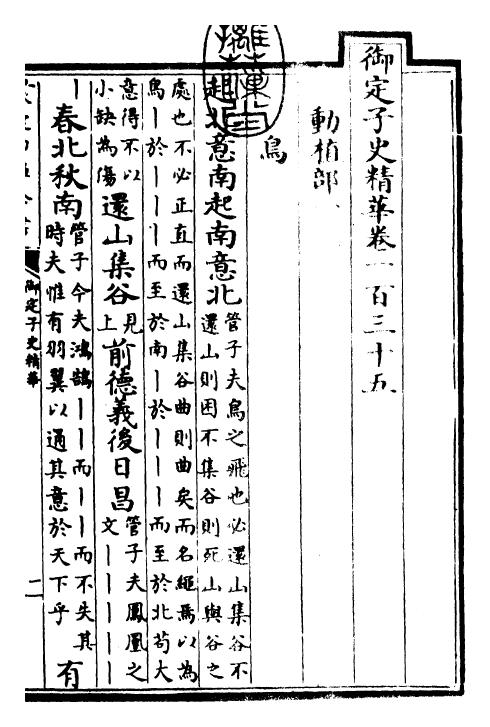 御定子史精華卷一百三十五
動植部
鳥
起北意南起南意北
管子夫鳥之飛也必還山集谷不
還山則困不集谷則死山與谷之
處也不必正直而還山集谷曲則曲矣而名繩焉以為
鳥｜於｜｜｜而至於南｜於｜｜｜而至於北苟大
意得不以
小缺為傷
還山集谷
見
上
前德義後日昌
管子夫鳳凰之
文｜｜｜｜｜
｜
春北秋南
管子今夫鴻鵠｜｜而｜｜而不失其
時夫惟有羽翼以通其意於天下乎
有
御定子史精華
二